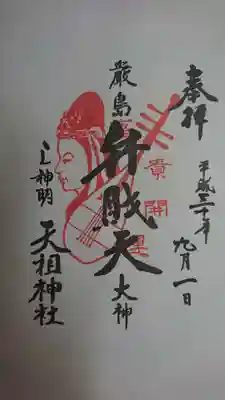 奉拝
平成三十年
九月一日
厳島
弁財天
大神
貴
開
星
神明
天祖神社